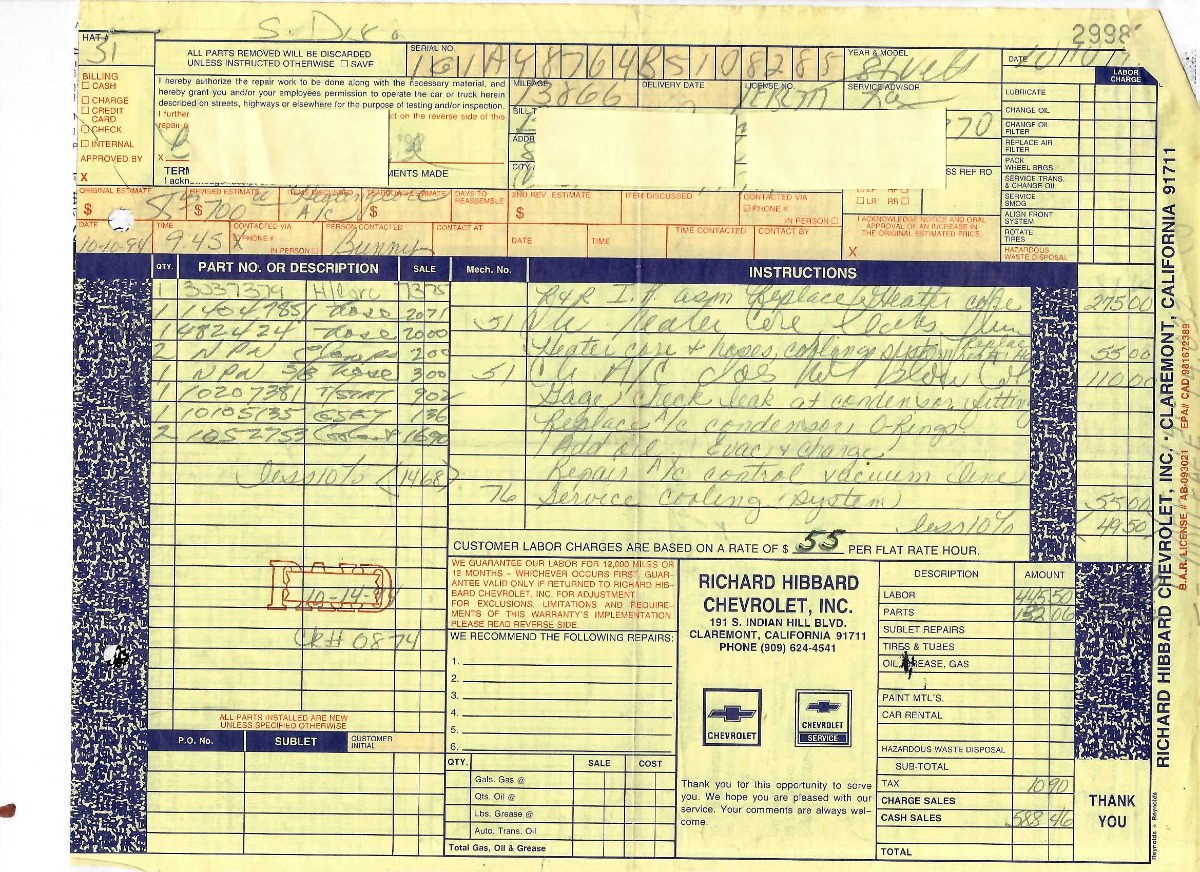 2998
HAT #
51
ALL PARTS REMOVED WILL BE DISCARDED
UNLESS INSTRUCTED OTHERWISE ☐ SAVE
SERIAL NO.
1G1A48764B5108288
YEAR & MODEL
DATE
LABOR
CHARGE
BILLING
☐ CASH
☐ CHARGE
☐ CREDIT
CARD
☐ CHECK
☐ INTERNAL
APPROVED BY
X
I hereby authorize the repair work to be done along with the necessary material, and
hereby grant you and/or your employees permission to operate the car or truck herein
described on streets, highways or elsewhere for the purpose of testing and/or inspection.
I further
ct on the reverse side of this
repair
X
TERM
MENTS MADE
I ackn
MILEAGE
3866
DELIVERY DATE
LICENSE NO.
SERVICE ADVISOR
BILL T
ADDR
CITY
70
SS REF RO
LUBRICATE
CHANGE OIL
CHANGE OIL
FILTER
REPLACE AIR
FILTER
PACK
WHEEL BRGS.
SERVICE TRANS.
& CHANGE OIL
SERVICE
SMOG
ALIGN FRONT
SYSTEM
ROTATE
TIRES
HAZARDOUS
WASTE DISPOSAL
ORIGINAL ESTIMATE
$
REVISED ESTIMATE
$ 700
Heating Core
A/C
$
DAYS TO
REASSEMBLE
2ND REV. ESTIMATE
$
ITEM DISCUSSED
CONTACTED VIA
☐ PHONE #
IN PERSON ☐
☐ LR RR ☐
I ACKNOWLEDGE NOTICE AND ORAL
APPROVAL OF AN INCREASE IN
THE ORIGINAL ESTIMATED PRICE.
X
DATE
10-10-94
TIME
9:45
CONTACTED VIA
PHONE #
IN PERSON ☐
PERSON CONTACTED
Bunny
CONTACT AT
DATE
TIME
TIME CONTACTED
CONTACT BY
QTY. PART NO. OR DESCRIPTION SALE Mech. No. INSTRUCTIONS
1 3037374 H/Core 7375
1 14047851 Hose 2071
1 482424 Hose 2000
2 NPN Clamps 200
1 NPN 5/8 hose 300
1 10207381 T/STAT 902
1 10105135 GSKT 136
2 1052753 1690
less 10% (1468)
R&R I.P. asm Replace Heater core 27500
51 Heater Core Leaks
Heater core & hoses, cooling system 5500
51 A/C Does Not Blow 11000
Gage, check leak at condensor fitting
Replace A/c condensor O-Rings
Add oil Evac & charge
Repair A/c control vacuum line
76 Service cooling (system) 5500
less 10% (4950)
CUSTOMER LABOR CHARGES ARE BASED ON A RATE OF $ 55 PER FLAT RATE HOUR.
WE GUARANTEE OUR LABOR FOR 12,000 MILES OR
12 MONTHS – WHICHEVER OCCURS FIRST. GUAR-
ANTEE VALID ONLY IF RETURNED TO RICHARD HIB-
BARD CHEVROLET, INC. FOR ADJUSTMENT.
FOR EXCLUSIONS, LIMITATIONS AND REQUIRE-
MENTS OF THIS WARRANTY'S IMPLEMENTATION
PLEASE READ REVERSE SIDE.
WE RECOMMEND THE FOLLOWING REPAIRS:
1.
2.
3.
4.
5.
6.
PAID
10-14-94
CR# 0874
ALL PARTS INSTALLED ARE NEW
UNLESS SPECIFIED OTHERWISE
P.O. No. SUBLET CUSTOMER
INITIAL
QTY. SALE COST
Gals. Gas @
Qts. Oil @
Lbs. Grease @
Auto. Trans. Oil
Total Gas, Oil & Grease
RICHARD HIBBARD
CHEVROLET, INC.
191 S. INDIAN HILL BLVD.
CLAREMONT, CALIFORNIA 91711
PHONE (909) 624-4541
CHEVROLET
CHEVROLET
SERVICE
Thank you for this opportunity to serve
you. We hope you are pleased with our
service. Your comments are always wel-
come.
DESCRIPTION AMOUNT
LABOR 445 50
PARTS 132 06
SUBLET REPAIRS
TIRES & TUBES
OIL, GREASE, GAS
PAINT MTL'S.
CAR RENTAL
HAZARDOUS WASTE DISPOSAL
SUB-TOTAL
TAX 10 90
CHARGE SALES
CASH SALES 588 46
TOTAL
THANK
YOU
RICHARD HIBBARD CHEVROLET, INC. • CLAREMONT, CALIFORNIA 91711
B.A.R. LICENSE # AB-093021 EPA# CAD 981672389
Reynolds + Reynolds